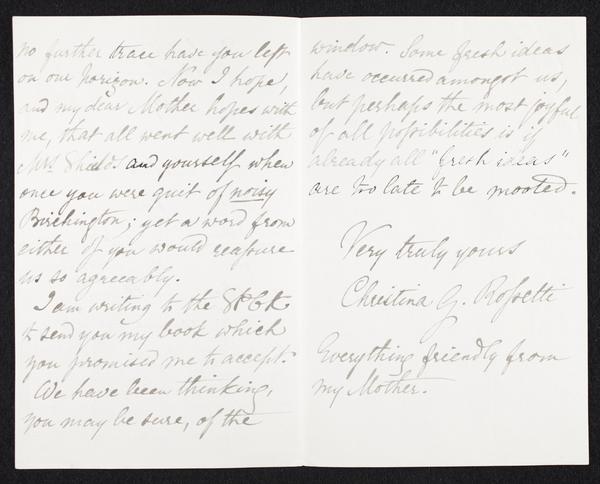 no further trace have you left
on our horizon. Now I hope,
and my dear Mother hopes with
me, that all went well with
Mrs. Shields and yourself when
once you were quit of noisy
Birchington; yet a word from
either of you would reassure
us so agreeably.
I am writing to the SPCK
to send you my book which
you promised me to accept.
We have been thinking,
you may be sure, of the
window. Some fresh ideas
have occurred amongst us,
but perhaps the most joyful
of all possibilities is if
already all "fresh ideas"
are too late to be mooted.
Very truly yours
Christina G. Rossetti
Everything friendly from
my Mother.